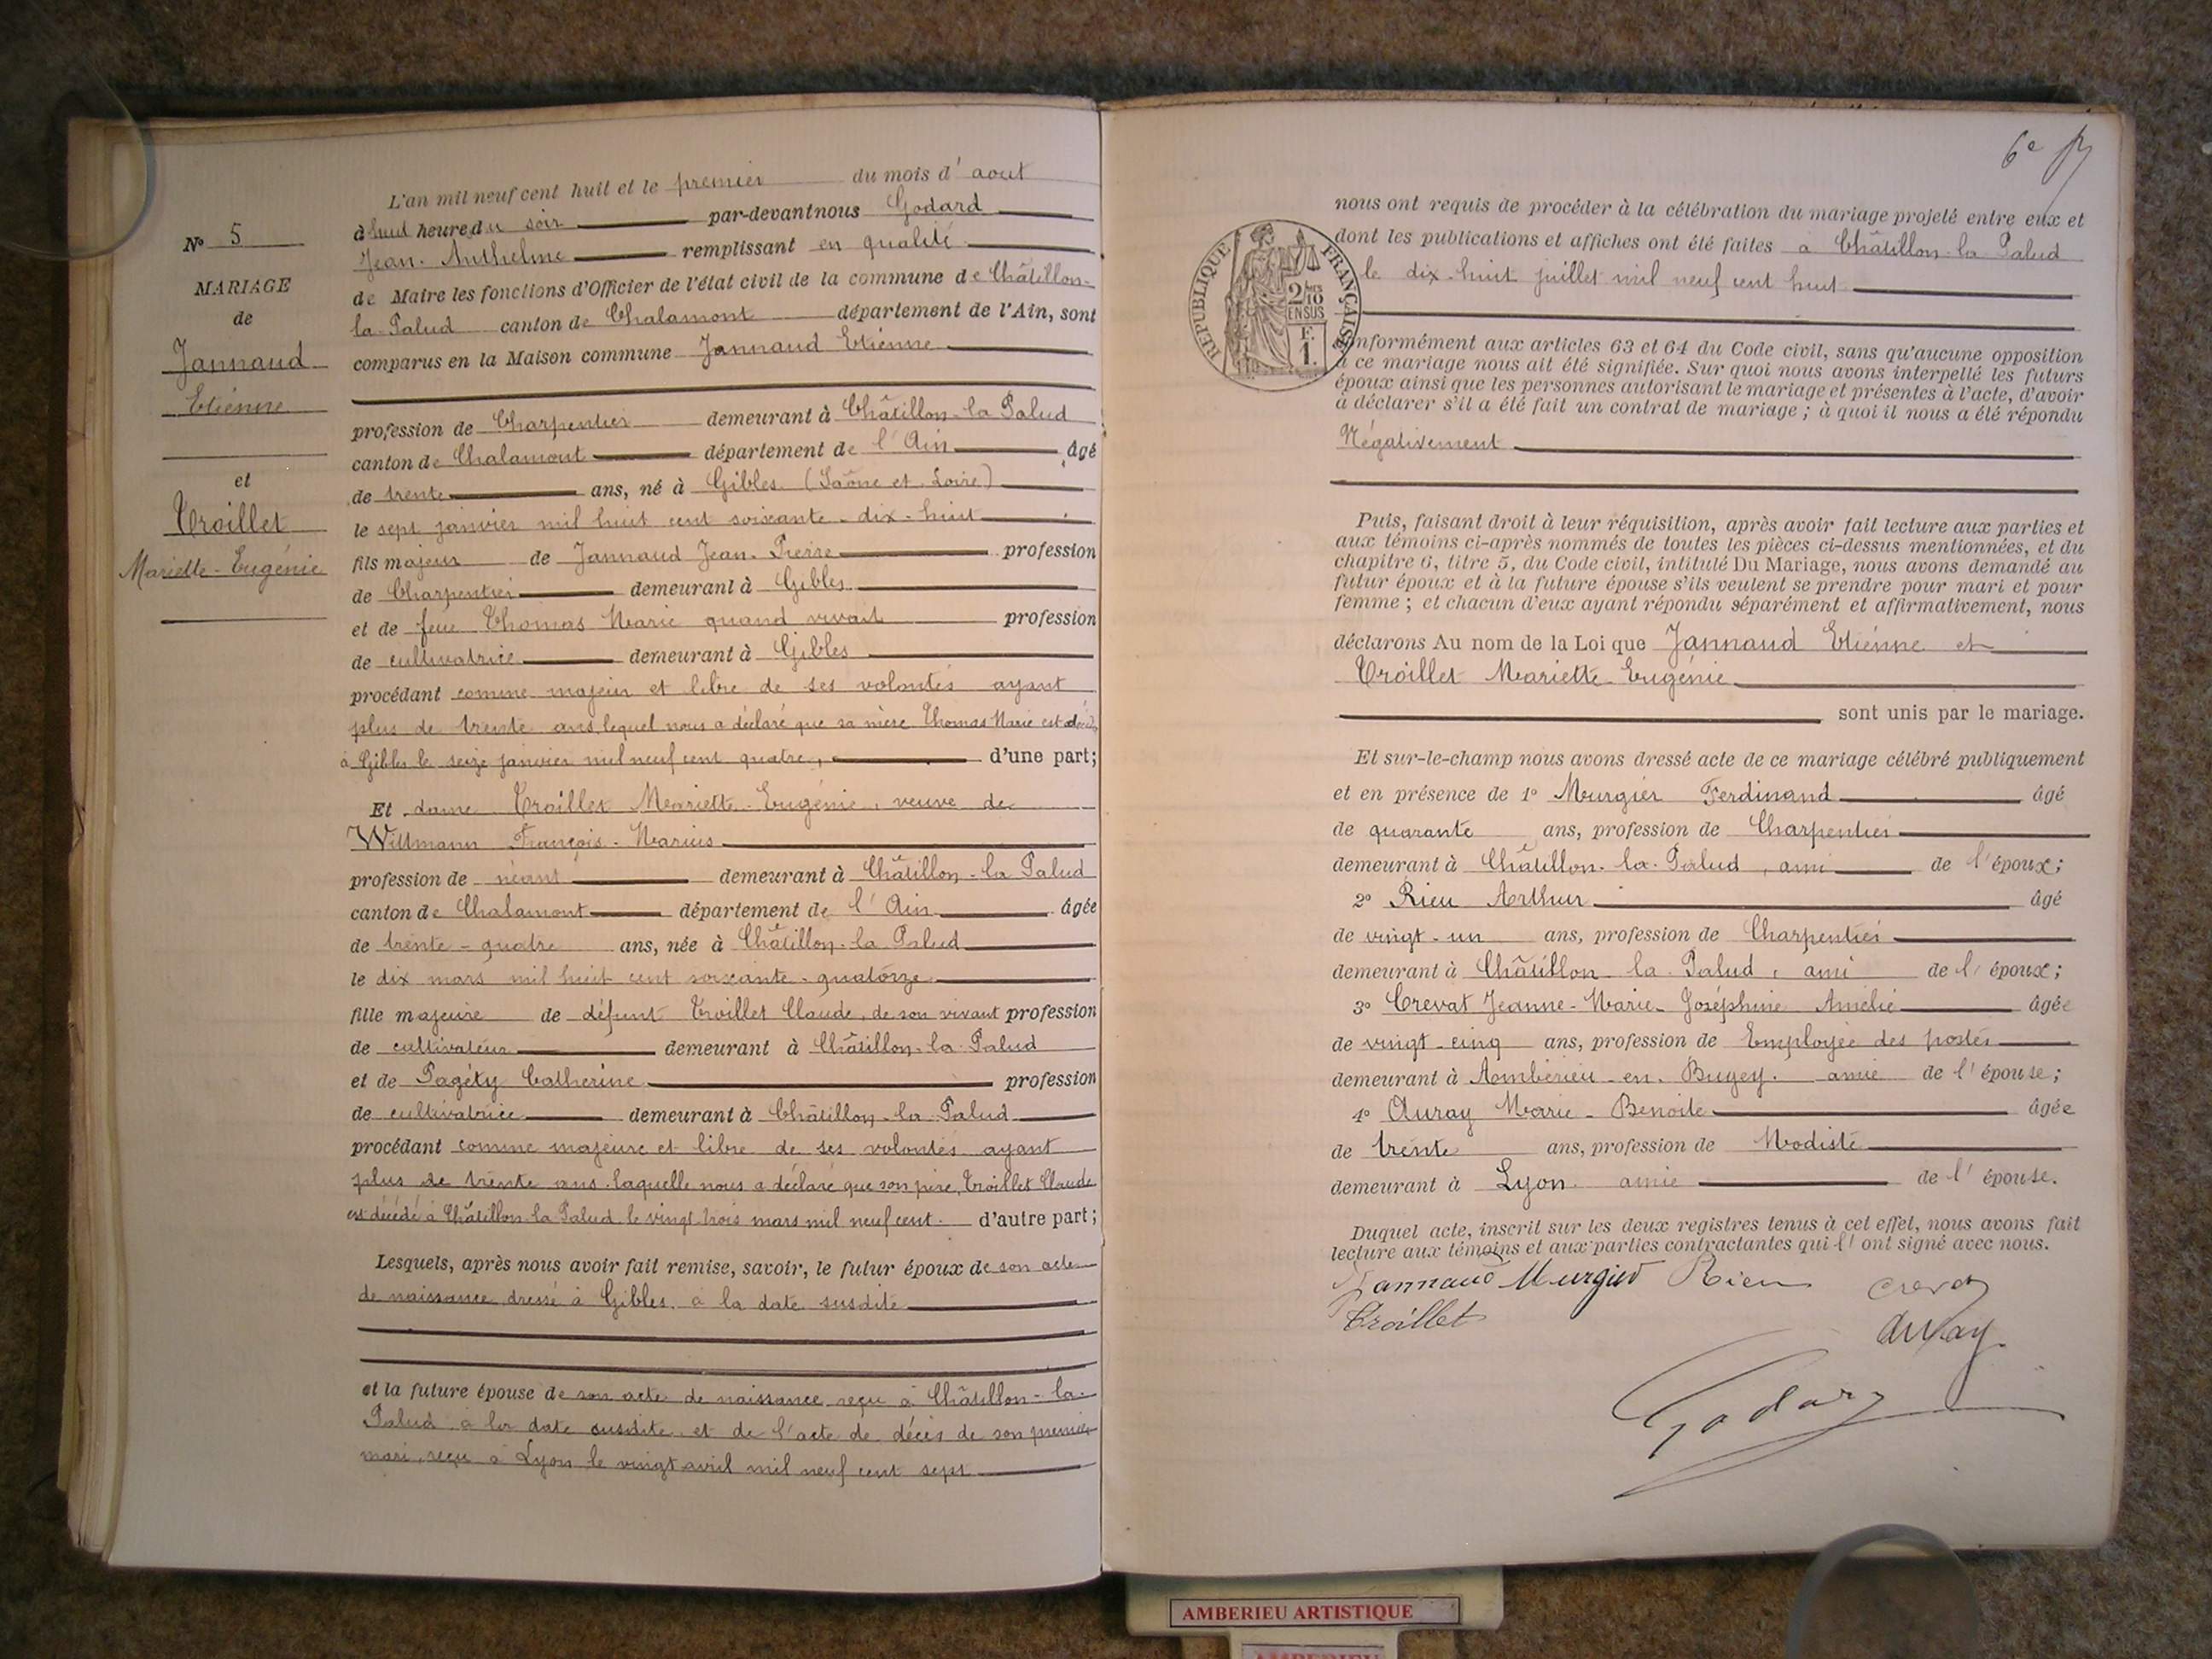 N° 5
MARIAGE
de
Jannaud
Etienne
et
Troillet
Mariette-Eugénie
L'an mil neuf cent huit et le premier du mois d'aout
à huit heure du soir par-devant nous Godard
Jean-Anthelme remplissant en qualité
de Maire les fonctions d'Officier de l'état civil de la commune de Châtillon-
la-Palud canton de Chalamont département de l'Ain, sont
comparus en la Maison commune Jannaud Etienne
profession de Charpentier demeurant à Châtillon-la Palud
canton de Chalamont département de l'Ain âgé
de trente ans, né à Gibles (Saône et Loire)
le sept janvier mil huit cent soixante-dix-huit
fils majeur de Jannaud Jean-Pierre profession
de Charpentier demeurant à Gibles
et de feue Thomas Marie quand vivait profession
de cultivatrice demeurant à Gibles
procédant comme majeur et libre de ses volontés ayant
plus de trente ans, lequel nous a déclaré que sa mère Thomas Marie est décédée
à Gibles le seize janvier mil neuf cent quatre, d'une part;
Et dame Troillet Mariette-Eugénie, veuve de
Wittmann François-Marius
profession de néant demeurant à Châtillon-la Palud
canton de Chalamont département de l'Ain âgée
de trente-quatre ans, née à Châtillon-la Palud
le dix mars mil huit cent soixante-quatorze
fille majeure de défunt Troillet Claude, de son vivant profession
de cultivateur demeurant à Châtillon-la-Palud
et de Pagéty Catherine profession
de cultivatrice demeurant à Châtillon-la-Palud
procédant comme majeure et libre de ses volontés ayant
plus de trente ans. laquelle nous a déclaré que son père, Troillet Claude
est décédé à Châtillon-la Palud le vingt trois mars mil neuf cent. d'autre part;
Lesquels, après nous avoir fait remise, savoir, le futur époux de son acte
de naissance dressé à Gibles, à la date susdite
et la future épouse de son acte de naissance reçu à Châtillon-la-
Palud à la date susdite et de l'acte de décès de son premier
mari, reçu à Lyon le vingt avril mil neuf cent sept
6e
nous ont requis de procéder à la célébration du mariage projeté entre eux et
dont les publications et affiches ont été faites à Châtillon-la Palud
le dix-huit juillet mil neuf cent huit
REPUBLIQUE FRANÇAISE
2/10
EN SUS
F.
1.
Conformément aux articles 63 et 64 du Code civil, sans qu'aucune opposition
à ce mariage nous ait été signifiée. Sur quoi nous avons interpellé les futurs
époux ainsi que les personnes autorisant le mariage et présentes à l'acte, d'avoir
à déclarer s'il a été fait un contrat de mariage; à quoi il nous a été répondu
Négativement
Puis, faisant droit à leur réquisition, après avoir fait lecture aux parties et
aux témoins ci-après nommés de toutes les pièces ci-dessus mentionnées, et du
chapitre 6, titre 5, du Code civil, intitulé Du Mariage, nous avons demandé au
futur époux et à la future épouse s'ils veulent se prendre pour mari et pour
femme; et chacun d'eux ayant répondu séparément et affirmativement, nous
déclarons Au nom de la Loi que Jannaud Etienne et
Troillet Mariette-Eugénie
sont unis par le mariage.
Et sur-le-champ nous avons dressé acte de ce mariage célébré publiquement
et en présence de 1° Murgier Ferdinand âgé
de quarante ans, profession de Charpentier
demeurant à Châtillon-la-Palud, ami de l'époux;
2° Rieu Arthur âgé
de vingt-un ans, profession de Charpentier
demeurant à Châtillon-la-Palud, ami de l'époux;
3° Crevat Jeanne-Marie-Joséphine Amélie âgée
de vingt-cinq ans, profession de Employée des postes
demeurant à Ambérieu-en-Bugey. amie de l'épouse;
4° Auray Marie-Benoite âgée
de trente ans, profession de Modiste
demeurant à Lyon. amie de l'épouse.
Duquel acte, inscrit sur les deux registres tenus à cet effet, nous avons fait
lecture aux témoins et aux parties contractantes qui l'ont signé avec nous.
Jannaud Murgier Rieu Crevat
Troillet Auray
Godard
AMBERIEU ARTISTIQUE
AMBERIEU